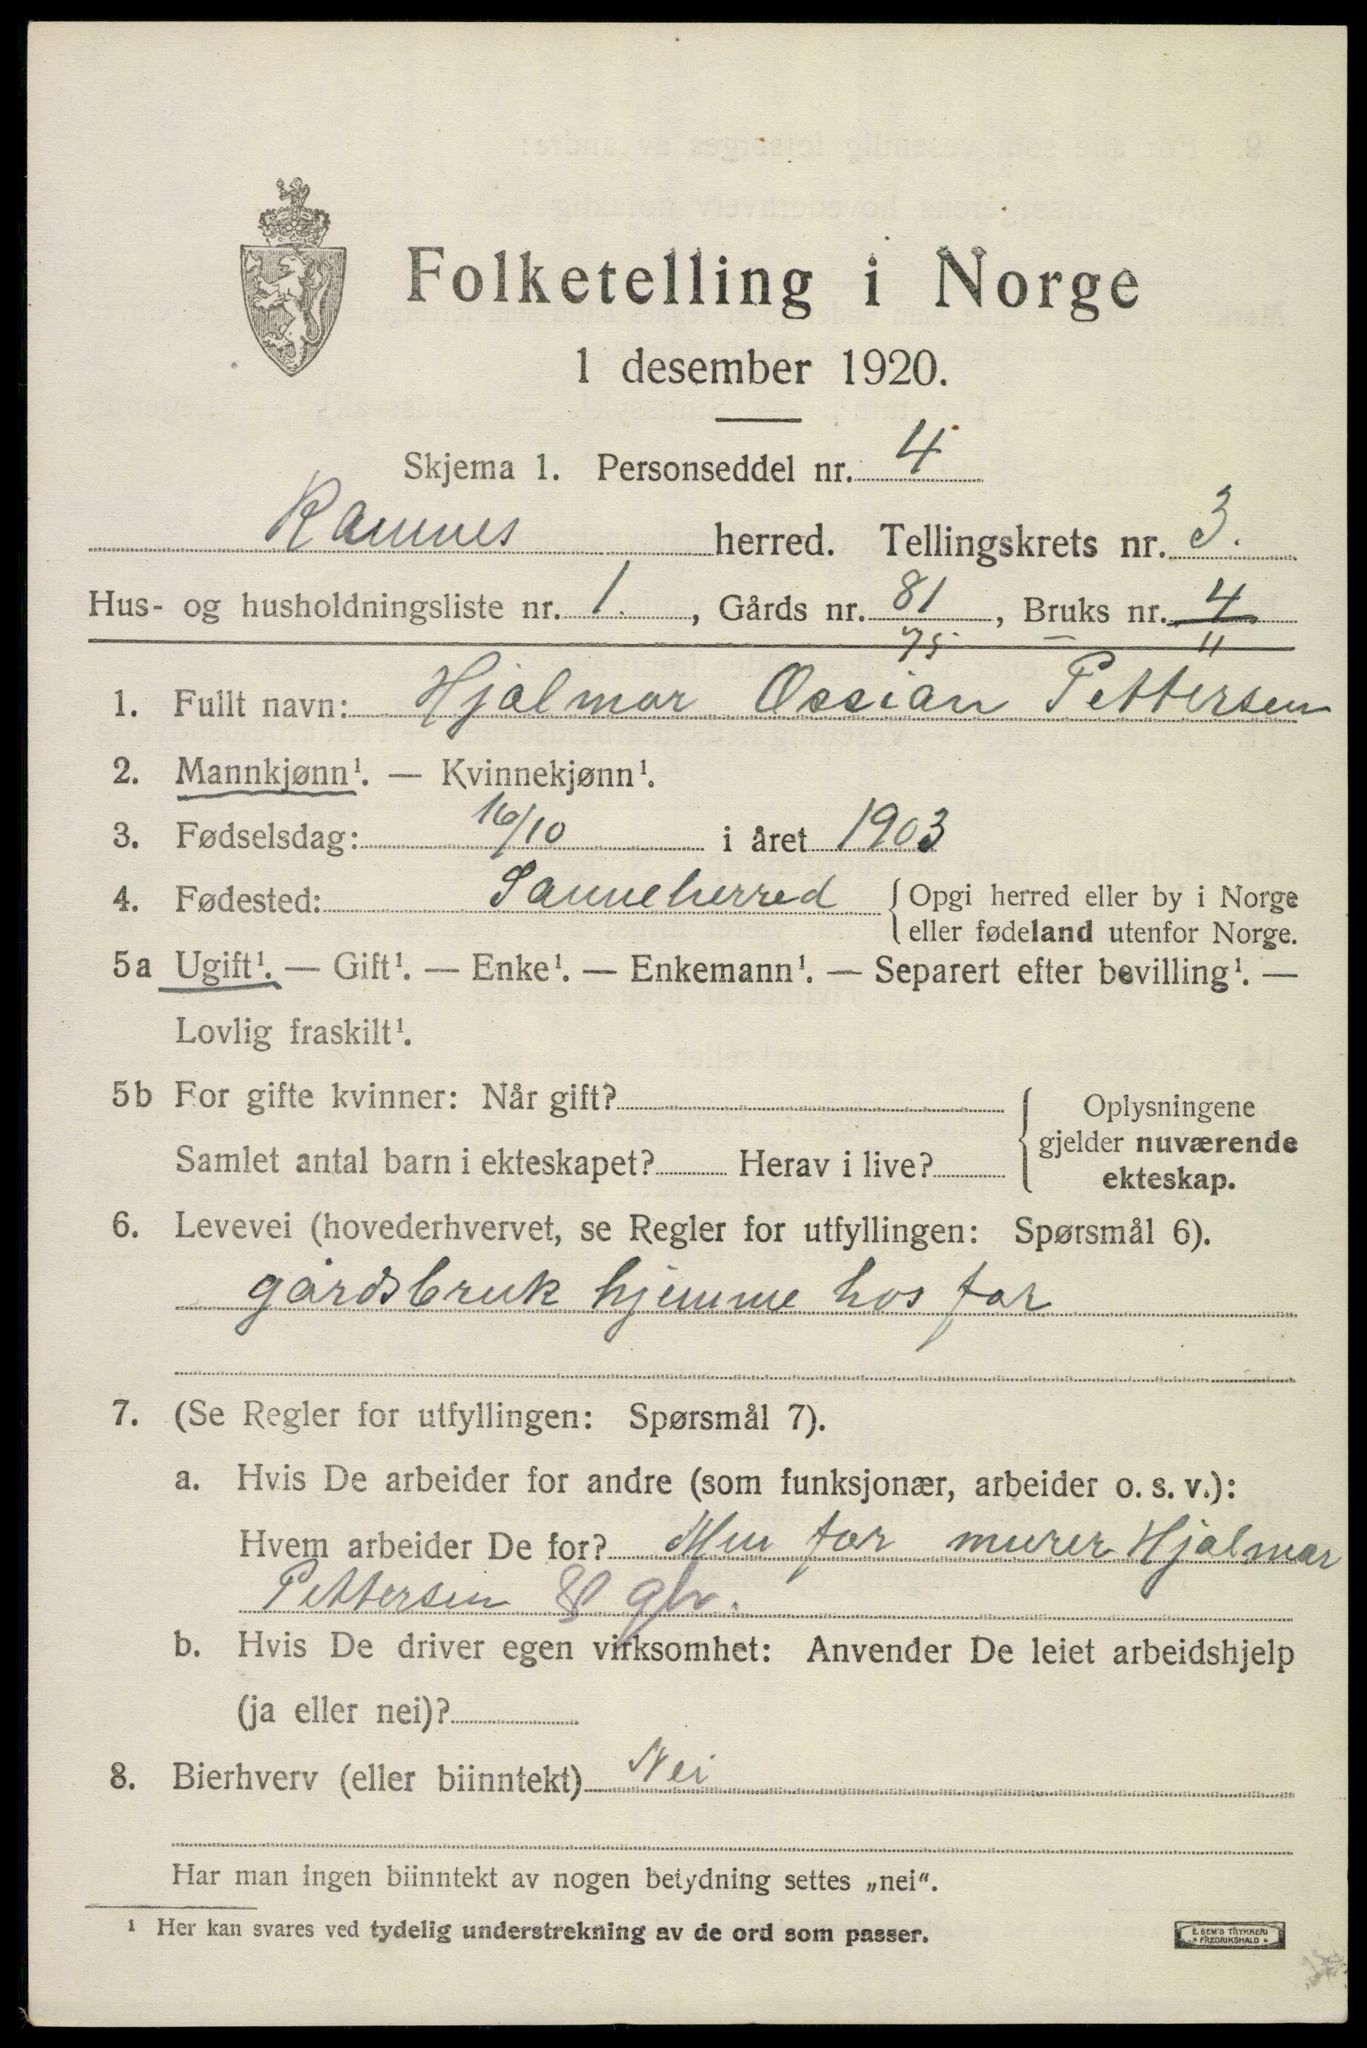 Folketelling i Norge
1 desember 1920.
Skjema 1. Personseddel nr. 4
Ramnes herred. Tellingskrets nr. 3.
Hus- og husholdningsliste nr. 1., Gårds nr. 81, Bruks nr. 4
75 11
1. Fullt navn: Hjalmar Ossian Pettersen
2. Mannkjønn¹. — Kvinnekjønn¹.
3. Fødselsdag: 16/10 i året 1903
4. Fødested: Sanneherred { Opgi herred eller by i Norge
eller fødeland utenfor Norge.
5a Ugift¹. — Gift¹. — Enke¹. — Enkemann¹. — Separert efter bevilling¹. —
Lovlig fraskilt¹.
5b For gifte kvinner: Når gift? { Oplysningene
gjelder nuværende
Samlet antal barn i ekteskapet? Herav i live? ekteskap.
6. Levevei (hovederhvervet, se Regler for utfyllingen: Spørsmål 6).
gårdsbruk hjemme hos far
7. (Se Regler for utfyllingen: Spørsmål 7).
a. Hvis De arbeider for andre (som funksjonær, arbeider o. s. v.):
Hvem arbeider De for? Min far murer Hjalmar
Pettersen
b. Hvis De driver egen virksomhet: Anvender De leiet arbeidshjelp
(ja eller nei)?
8. Bierhverv (eller biinntekt) Nei
Har man ingen biinntekt av nogen betydning settes „nei“.
¹ Her kan svares ved tydelig understrekning av de ord som passer.
E. SEM'S TRYKKERI
FREDRIKSHALD